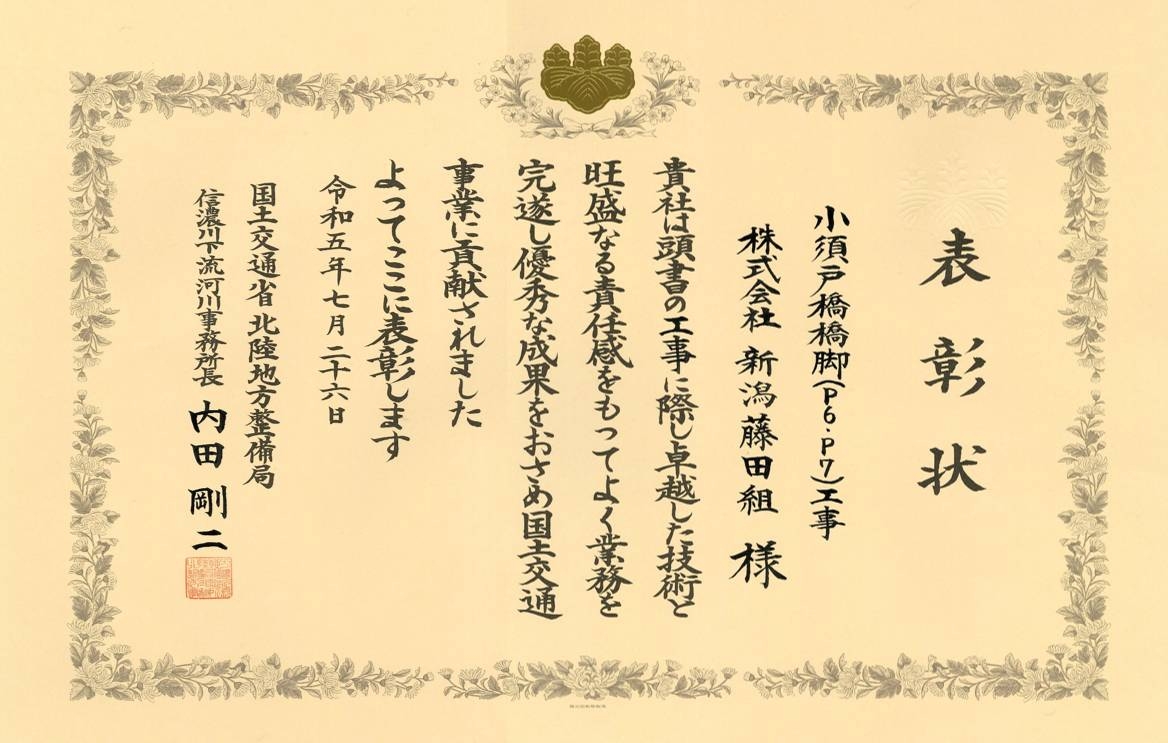 表彰状
小須戸橋橋脚(P6・P7)工事
株式会社 新潟藤田組 様
貴社は頭書の工事に際し卓越した技術と
旺盛なる責任感をもってよく業務を
完遂し優秀な成果をおさめ国土交通
事業に貢献されました
よってここに表彰します
令和五年七月二十六日
国土交通省北陸地方整備局
信濃川下流河川事務所長 内田 剛二